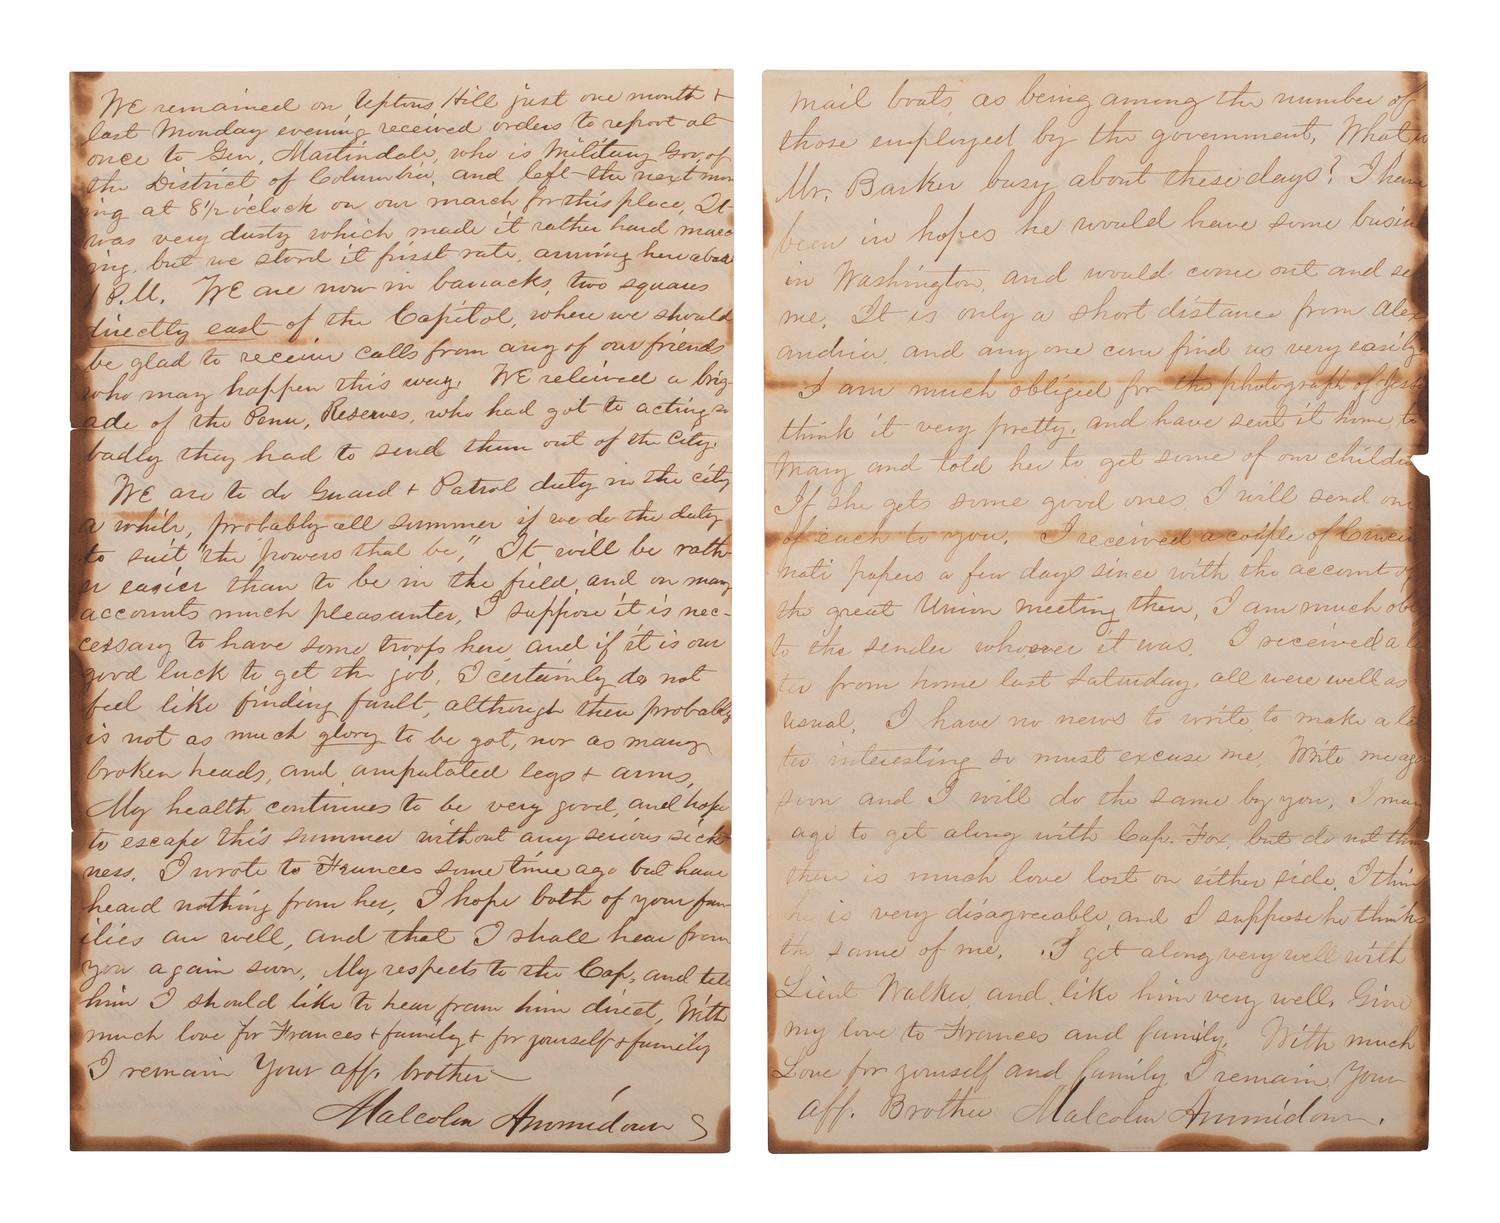 We remained on Uptons Hill just one month +
last Monday evening received orders to report at
once to Gen. Martindale, who is Military Gov. of
the District of Columbia, and left the next morn
ing at 8½ o'clock on our march for this place, It
was very dusty which made it rather hard march
ing, but we stood it first rate, arriving here about
1 P.M. We are now in barracks, two squares
directly east of the Capitol, where we should
be glad to receive calls from any of our friends
who may happen this way. We relieved a brig-
ade of the Penn, Reserves, who had got to acting so
badly they had to send them out of the city.
We are to do Guard + Patrol duty in the city
a while, probably all summer if we do the duty
to suit "the powers that be," It will be rath-
er easier than to be in the field, and on many
accounts much pleasanter, I suppose it is nec-
cessary to have some troops here and if it is our
good luck to get the job, I certainly do not
feel like finding fault, although there probably
is not as much glory to be got, nor as many
broken heads, and amputated legs + arms,
My health continues to be very good, and hope
to escape this summer without any serious sick
ness. I wrote to Frances some time ago but have
heard nothing from her, I hope both of your fam
ilies are well, and that I shall hear from
you again soon, My respects to the Cap, and tell
him I should like to hear from him direct, With
much love for Frances + family + for yourself + family
I remain Your aff. brother
Malcolm Ammidown
mail boats as being among the number of
those employed by the government, What is
Mr. Barker busy about these days? I have
been in hopes he would have some busin
in Washington, and would come out and se
me, It is only a short distance from Alex
andria, and any one can find us very easily
I am much obliged for the photograph of
think it very pretty, and have sent it home, to
Mary and told her to get some of our childre
If she gets some good ones, I will send one
of each to you, I received a couple of Cincin
nati papers a few days since with the account of
the great Union meeting there, I am much obl
to the sender whoever it was. I received a le
ter from home last Saturday, all were well as
usual. I have no news to write to make a let
ter interesting so must excuse me, Write me aga
soon and I will do the same by you, I man
age to get along with Cap. Fox, but do not thin
there is much love lost on either side. I thin
he is very disagreeable and I suppose he thinks
the same of me, I get along very well with
Lieut Walker and like him very well, Give
my love to Frances and family, With much
Love for yourself and family I remain, Your
aff. Brother Malcolm Ammidown.